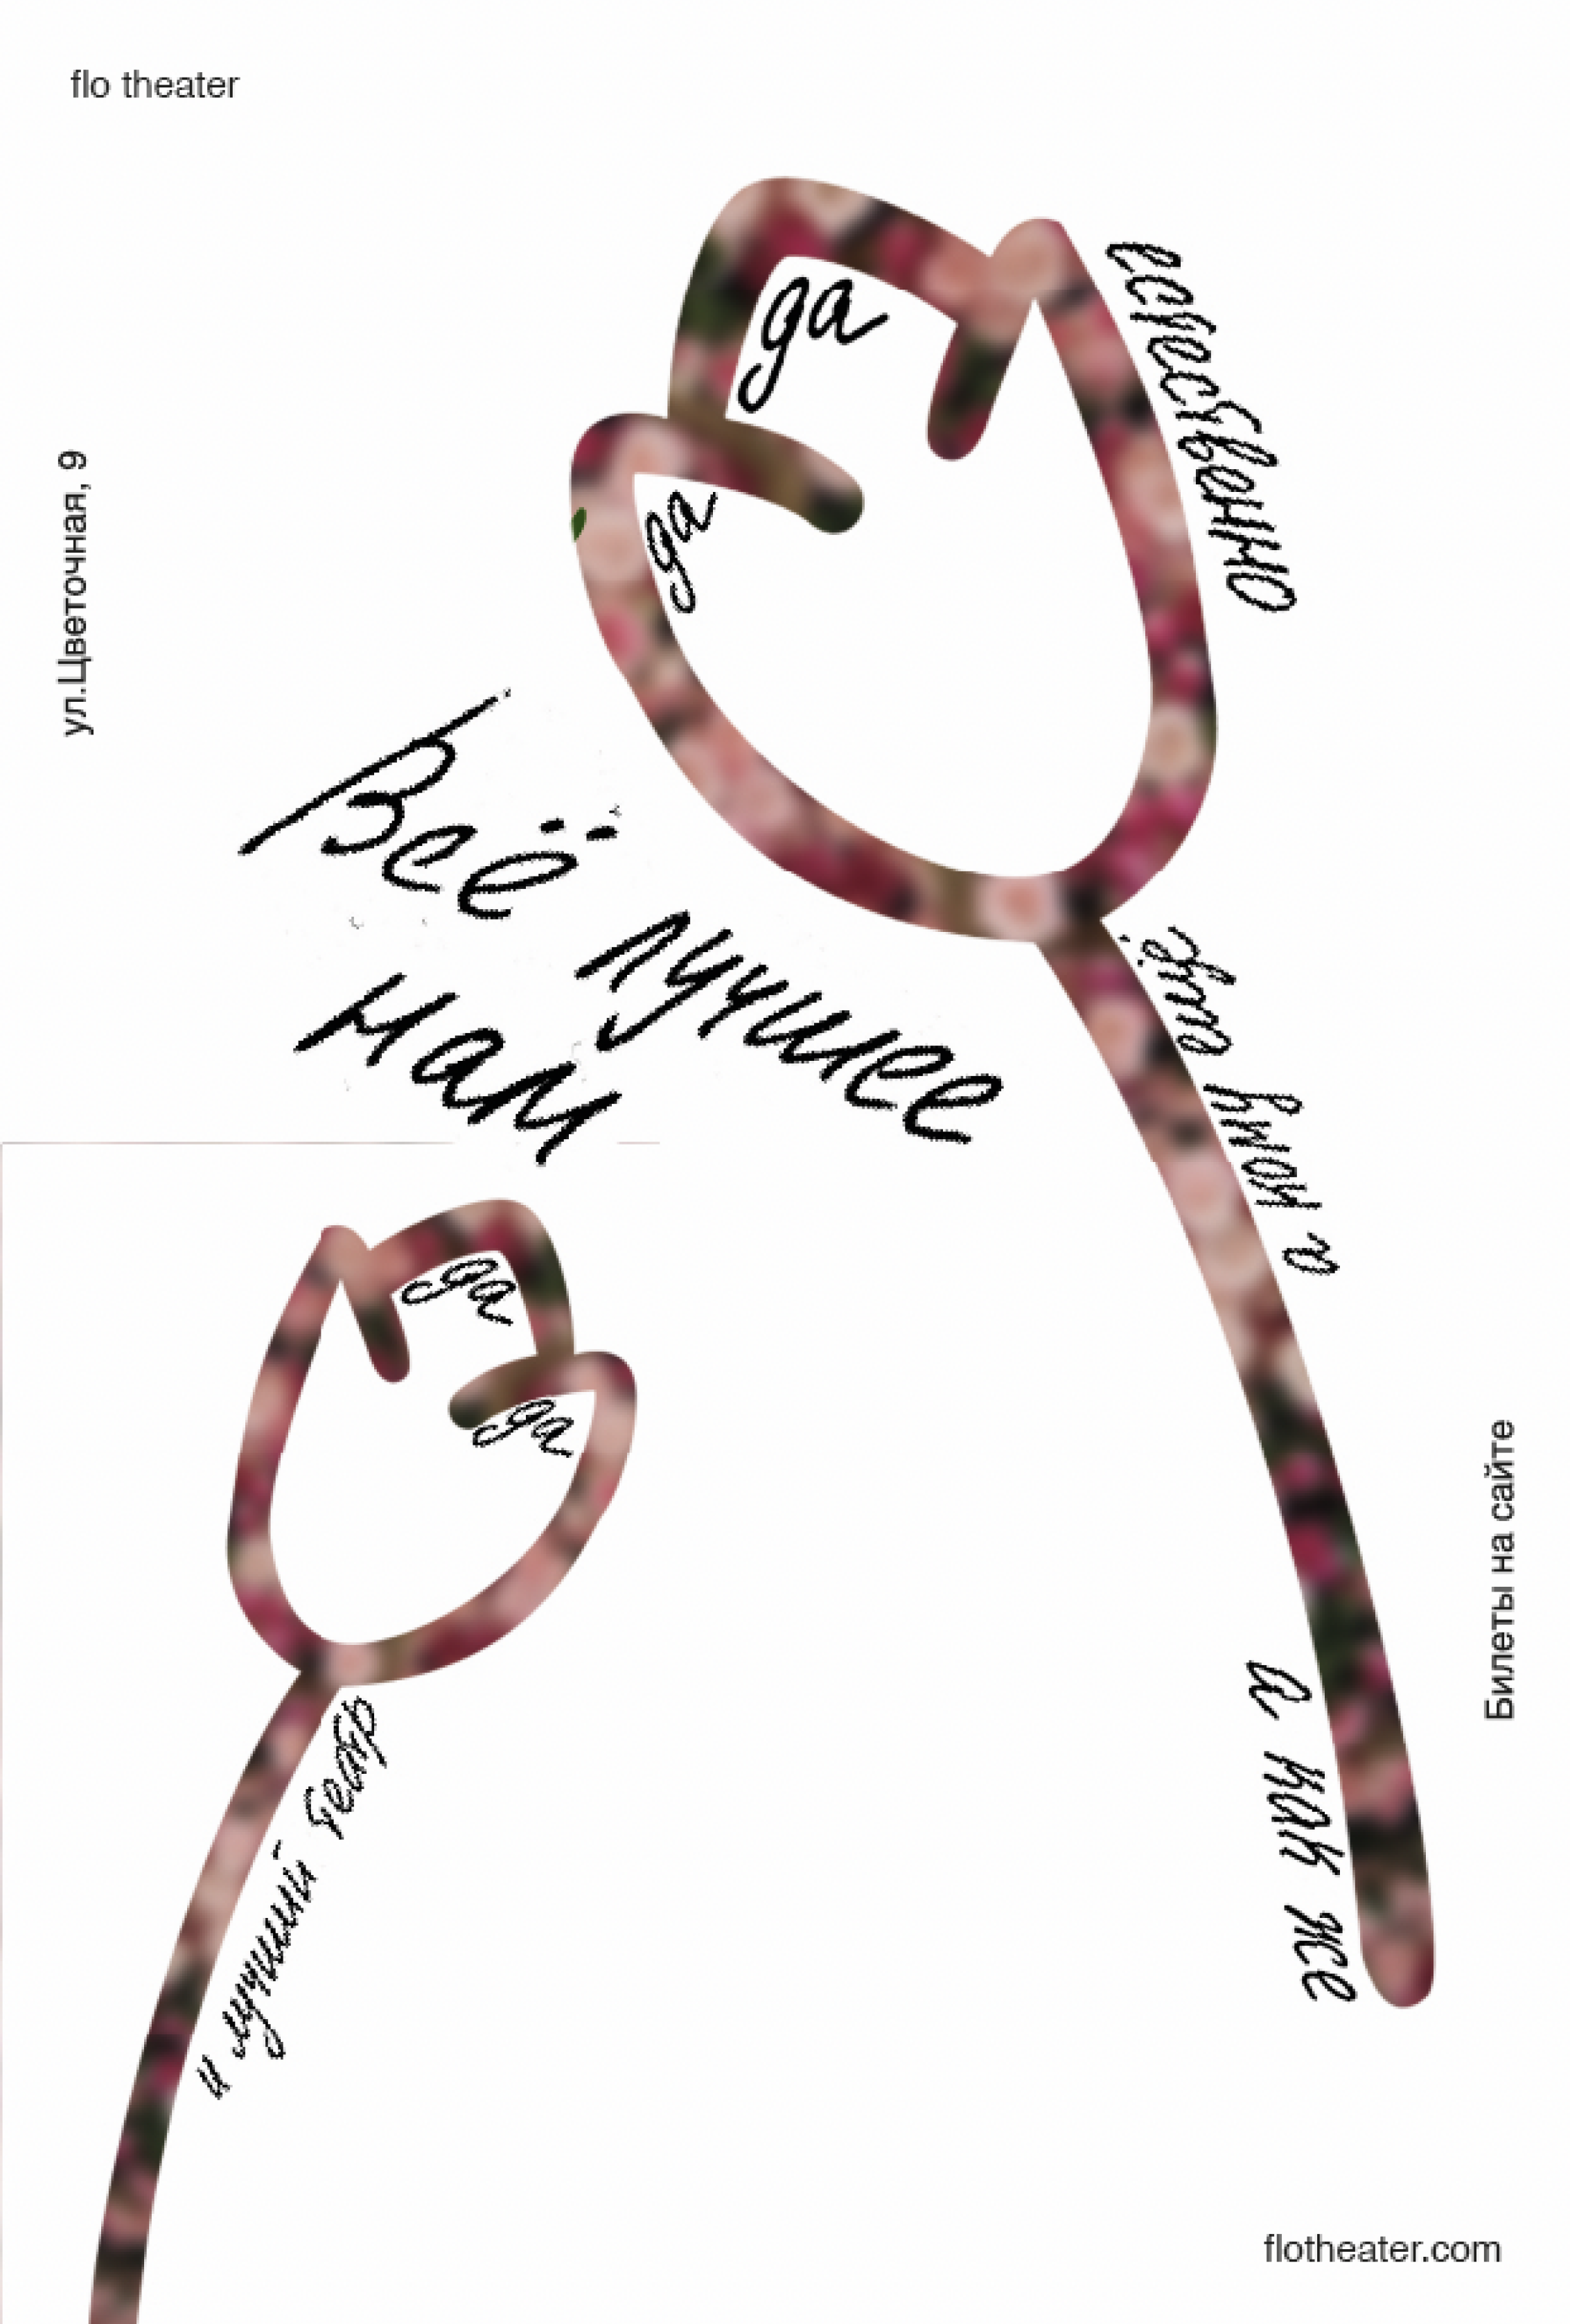 flo theater
ул.Цветочная, 9
да
да
естественно
Всё лучшее
нам
а кому
да
да
и лучший театр
а как же
Билеты на сайте
flotheater.com